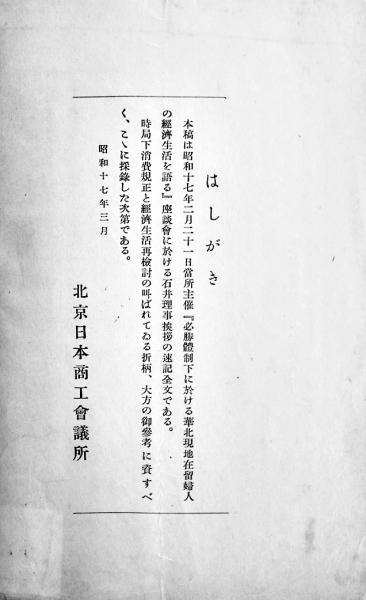 はしがき
本稿は昭和十七年二月二十一日當所主催『必勝體制下に於ける華北現地在留婦人
の經濟生活を語る』座談會に於ける石井理事挨拶の速記全文である。
時局下消費規正と經濟生活再檢討の叫ばれてゐる折柄、大方の御參考に資すべ
く、こゝに採錄した次第である。
昭和十七年三月
北京日本商工會議所